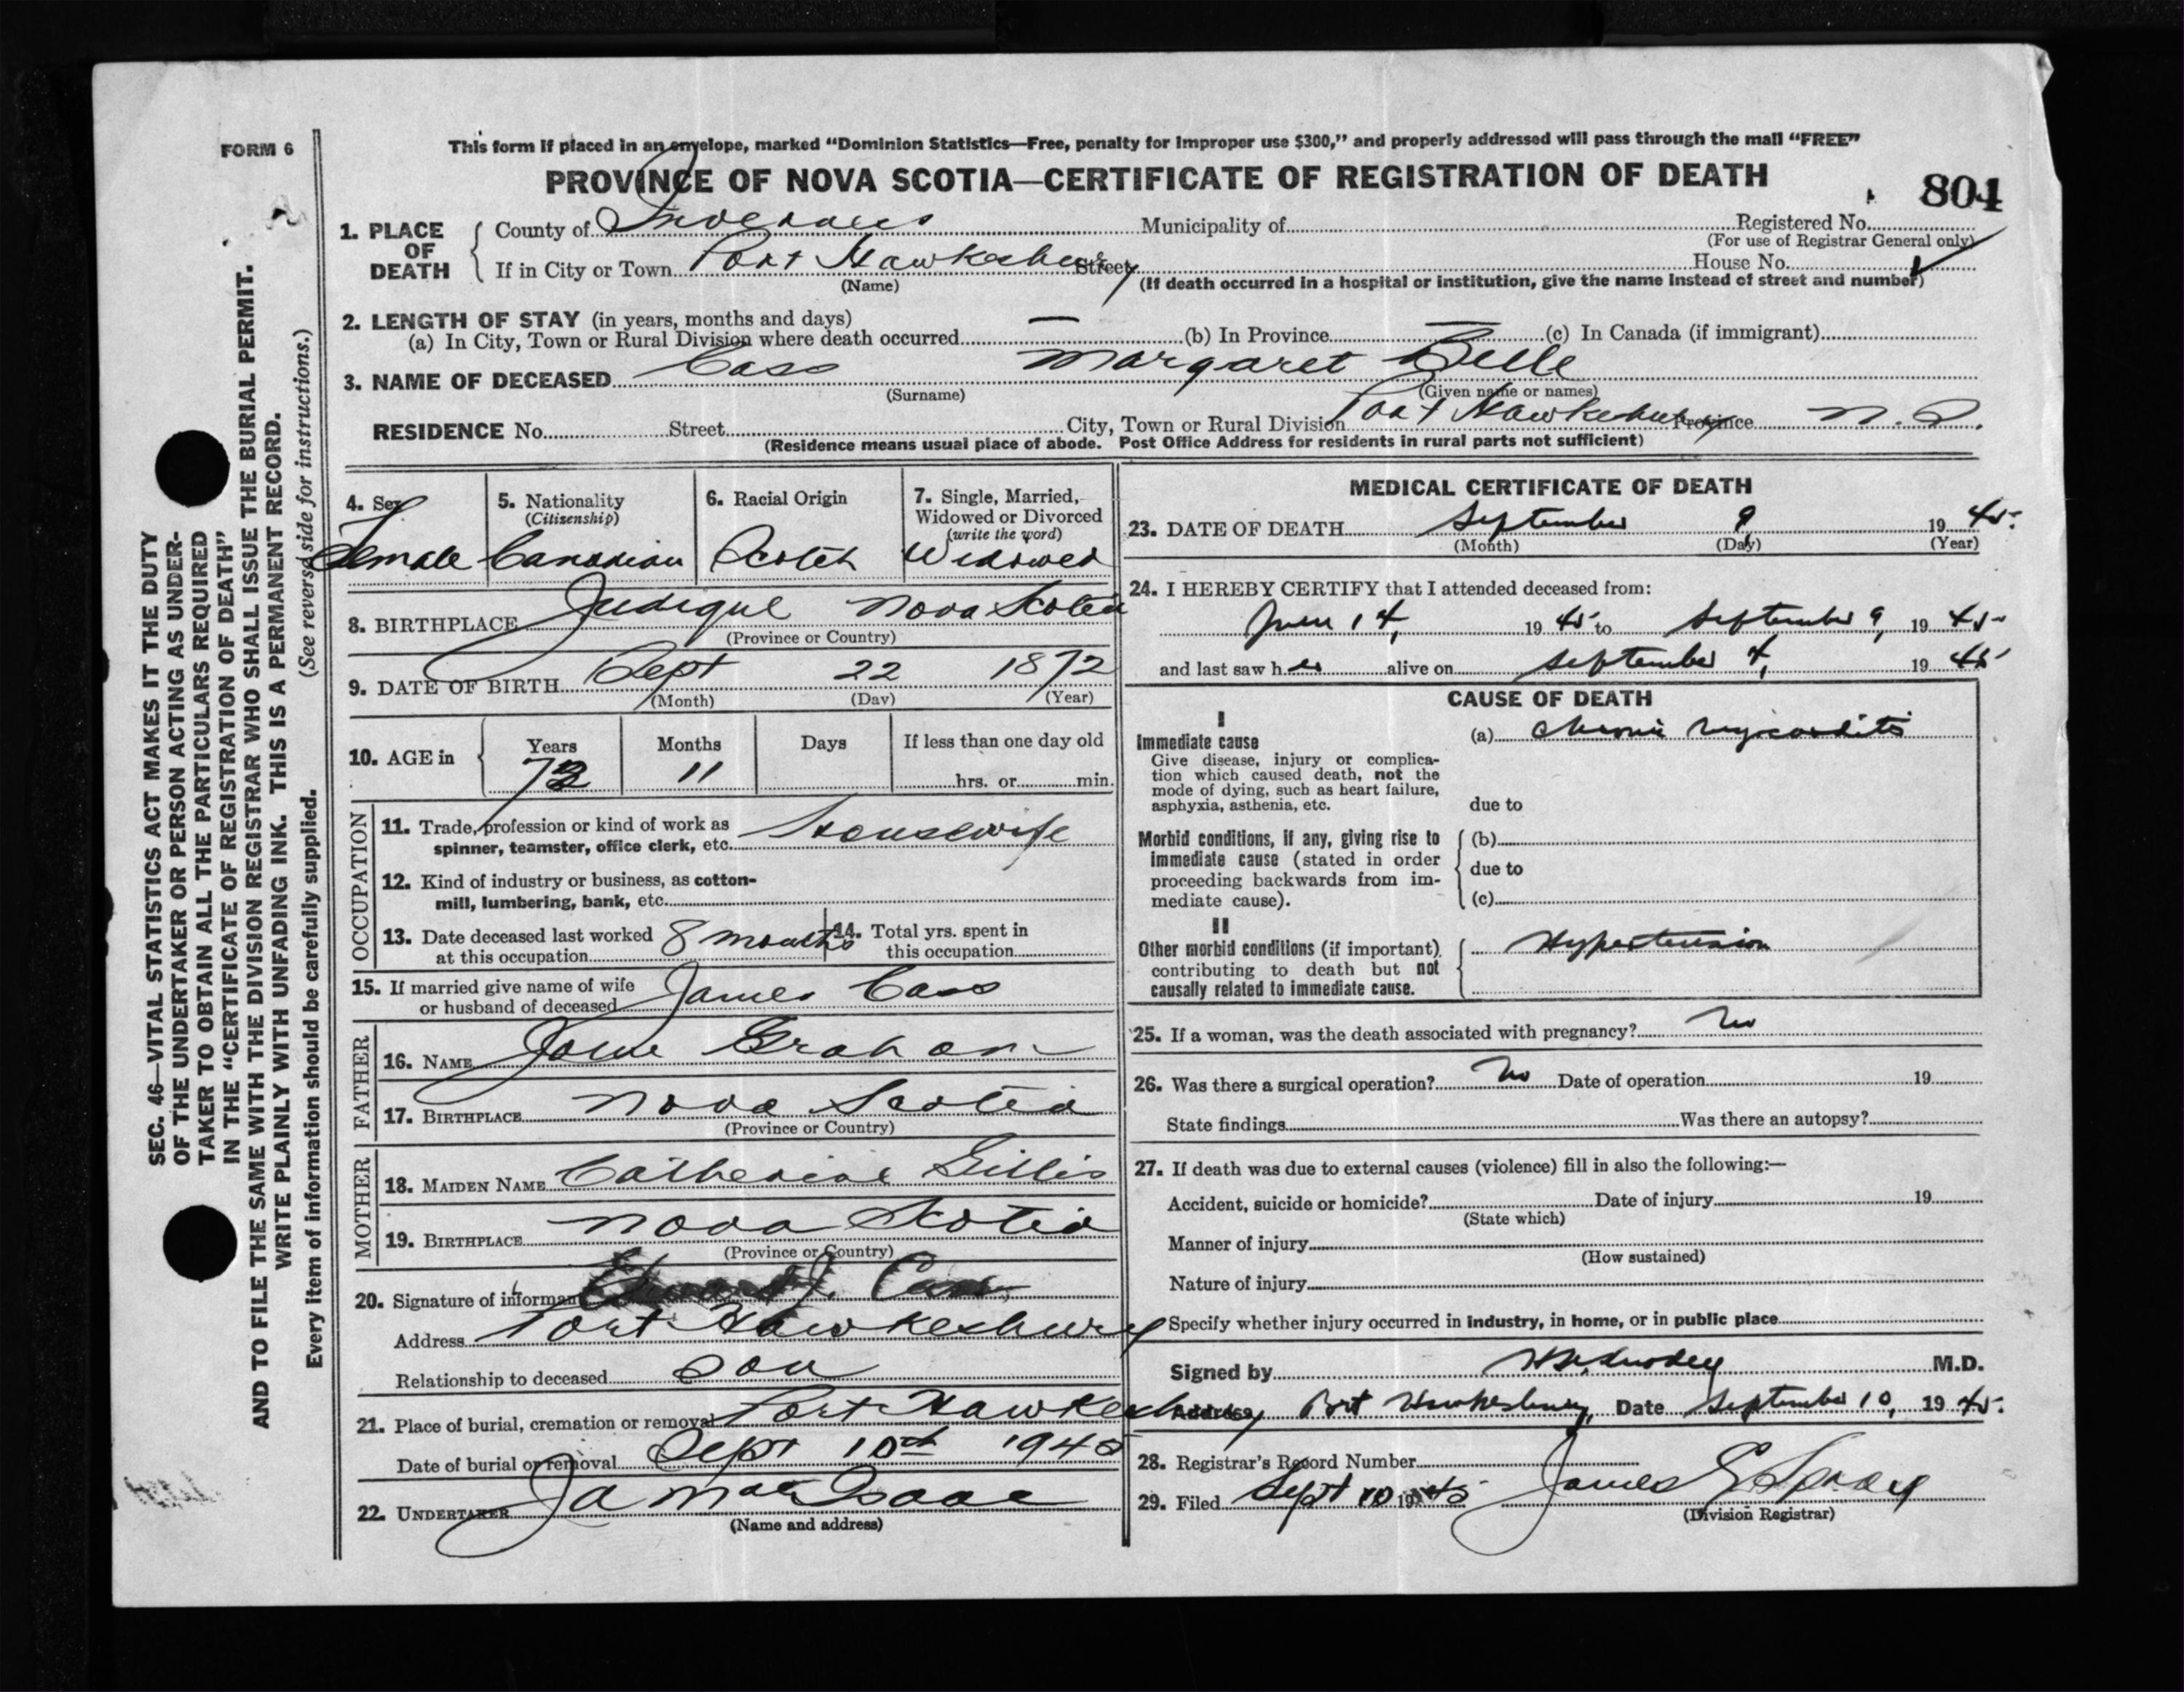 FORM 6
This form if placed in an envelope, marked “Dominion Statistics—Free, penalty for improper use $300,” and properly addressed will pass through the mail “FREE”
PROVINCE OF NOVA SCOTIA—CERTIFICATE OF REGISTRATION OF DEATH
804
1. PLACE OF DEATH
County of Inverness Municipality of Registered No.
(For use of Registrar General only)
If in City or Town Port Hawkesbury Street House No.
(Name) (If death occurred in a hospital or institution, give the name instead of street and number)
2. LENGTH OF STAY (in years, months and days)
(a) In City, Town or Rural Division where death occurred — (b) In Province — (c) In Canada (if immigrant)
3. NAME OF DECEASED Cass Margaret Belle
(Surname) (Given name or names)
RESIDENCE No. Street City, Town or Rural Division Port Hawkesbury Province N.S.
(Residence means usual place of abode. Post Office Address for residents in rural parts not sufficient)
4. Sex
Female
5. Nationality
(Citizenship)
Canadian
6. Racial Origin
Scotch
7. Single, Married,
Widowed or Divorced
(write the word)
Widowed
8. BIRTHPLACE Judique Nova Scotia
(Province or Country)
9. DATE OF BIRTH Sept 22 1872
(Month) (Day) (Year)
10. AGE in Years Months Days If less than one day old
72 11 hrs. or min.
OCCUPATION
11. Trade, profession or kind of work as
spinner, teamster, office clerk, etc. Housewife
12. Kind of industry or business, as cotton-
mill, lumbering, bank, etc.
13. Date deceased last worked
at this occupation 8 months
14. Total yrs. spent in
this occupation
15. If married give name of wife
or husband of deceased James Cass
FATHER
16. NAME Graham
17. BIRTHPLACE Nova Scotia
(Province or Country)
MOTHER
18. MAIDEN NAME Catherine Gillis
19. BIRTHPLACE Nova Scotia
(Province or Country)
20. Signature of informant J. Cass
Address Port Hawkesbury
Relationship to deceased son
21. Place of burial, cremation or removal Port Hawkesbury
Date of burial or removal Sept 10th 1945
22. UNDERTAKER J A MacIsaac
(Name and address)
MEDICAL CERTIFICATE OF DEATH
23. DATE OF DEATH September 9 19 45.
(Month) (Day) (Year)
24. I HEREBY CERTIFY that I attended deceased from:
June 14, 19 45 to September 9, 19 45
and last saw her alive on September 4, 19 45
CAUSE OF DEATH
I
Immediate cause
Give disease, injury or complica-
tion which caused death, not the
mode of dying, such as heart failure,
asphyxia, asthenia, etc.
(a) Chronic myocarditis
due to
Morbid conditions, if any, giving rise to
immediate cause (stated in order
proceeding backwards from im-
mediate cause).
(b)
due to
(c)
II
Other morbid conditions (if important)
contributing to death but not
causally related to immediate cause.
Hypertension
25. If a woman, was the death associated with pregnancy? No
26. Was there a surgical operation? No Date of operation 19
State findings Was there an autopsy?
27. If death was due to external causes (violence) fill in also the following:—
Accident, suicide or homicide? Date of injury 19
(State which)
Manner of injury
(How sustained)
Nature of injury
Specify whether injury occurred in industry, in home, or in public place
Signed by M.D.
Address Port Hawkesbury, Date September 10, 19 45.
28. Registrar's Record Number
29. Filed Sept 10 1945 James
(Division Registrar)
SEC. 46—VITAL STATISTICS ACT MAKES IT THE DUTY
OF THE UNDERTAKER OR PERSON ACTING AS UNDER-
TAKER TO OBTAIN ALL THE PARTICULARS REQUIRED
IN THE “CERTIFICATE OF REGISTRATION OF DEATH”
AND TO FILE THE SAME WITH THE DIVISION REGISTRAR WHO SHALL ISSUE THE BURIAL PERMIT.
WRITE PLAINLY WITH UNFADING INK. THIS IS A PERMANENT RECORD.
Every item of information should be carefully supplied. (See reverse side for instructions.)